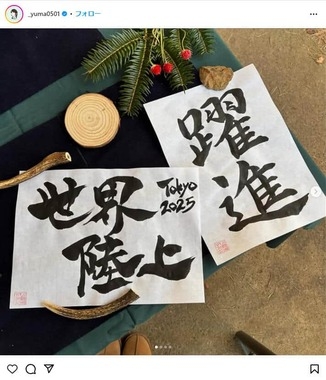 _yuma0501 • フォロー
世界
陸上
Tokyo
2025
躍
進